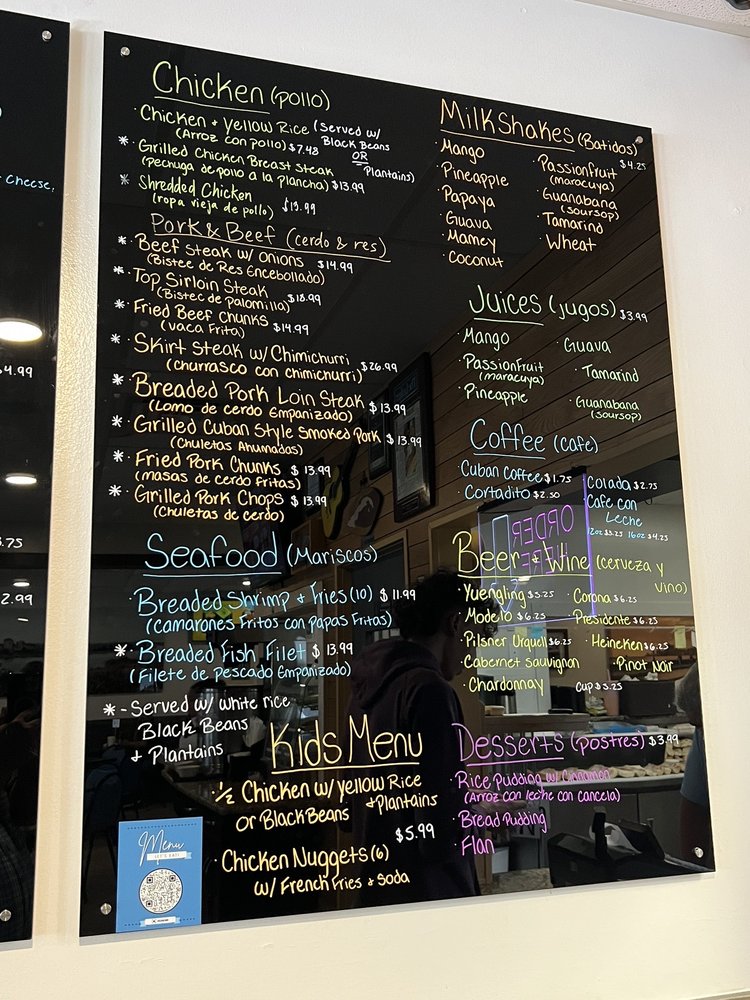 Cheese,
4.99
.75
2.99
Chicken (pollo)
· Chicken + Yellow Rice (Served w/
(Arroz con pollo) $7.48 Black Beans
OR
Plantains)
* · Grilled Chicken Breast Steak
(pechuga de pollo a la plancha) $13.99
* · Shredded Chicken
(ropa vieja de pollo)
Pork & Beef (cerdo & res)
* · Beef steak w/ onions $14.99
(Bistec de Res Encebollado)
* · Top Sirloin Steak $18.99
(Bistec de Palomilla)
* · Fried Beef Chunks $14.99
(Vaca Frita)
* · Skirt Steak w/ Chimichurri $26.99
(churrasco con chimichurri)
* · Breaded Pork Loin Steak $13.99
(Lomo de cerdo Empanizado)
* · Grilled Cuban Style Smoked Pork $13.99
(Chuletas Ahumadas)
* · Fried Pork Chunks $13.99
(masas de cerdo fritas)
* · Grilled Pork Chops $13.99
(Chuletas de cerdo)
Seafood (Mariscos)
· Breaded Shrimp + Fries (10) $11.99
(camarones Fritos con Papas Fritas)
* · Breaded Fish Filet $13.99
(Filete de Pescado Empanizado)
* - Served w/ white rice
Black Beans
+ Plantains
Kids Menu
· 1/2 Chicken w/ yellow Rice
or Black Beans + Plantains
$5.99
· Chicken Nuggets (6)
w/ French Fries + Soda
Menu
LET'S EAT!
MilkShakes (Batidos)
$4.25
· Mango
· Pineapple
· Papaya
· Guava
· Mamey
· Coconut
· Passionfruit
(maracuya)
· Guanabana
(soursop)
· Tamarind
· Wheat
Juices (jugos) $3.99
· Mango
· Passionfruit
(maracuya)
· Pineapple
· Guava
· Tamarind
· Guanabana
(soursop)
Coffee (cafe)
Cuban Coffee $1.75
· Cortadito $2.50
· Colada $2.75
· Cafe con
Leche
12oz $3.25 16oz $4.25
ORDER
HERE
Beer + Wine (cerveza y
vino)
· Yuengling $5.25
· Modelo $6.25
· Pilsner Urquell $6.25
· Cabernet Sauvignon
· Chardonnay
· Corona $6.25
· Presidente $6.25
· Heineken $6.25
· Pinot Noir
Cup $5.25
Desserts (postres) $3.99
· Rice Pudding w/ Cinnamon
(Arroz con leche con cancela)
· Bread Pudding
· Flan